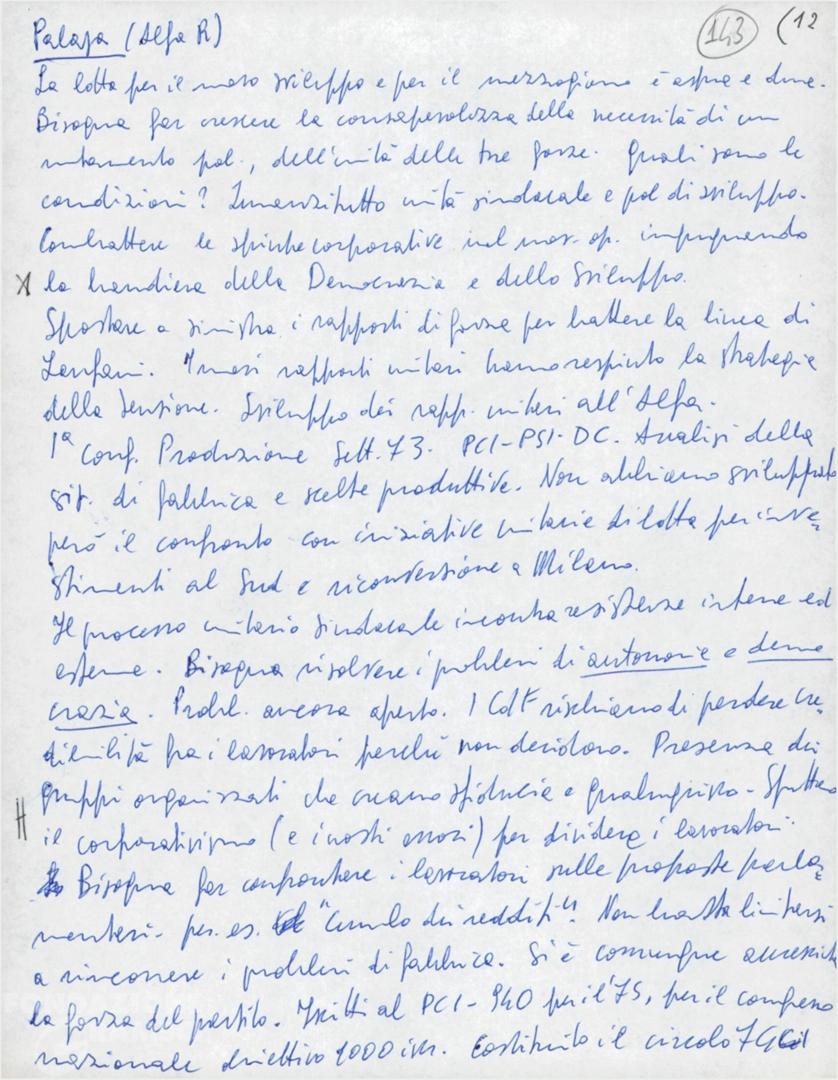 Palaja (Alfa R) 143 (12
La lotta per il nuovo sviluppo e per il mezzogiorno è aspra e dura.
Bisogna far crescere la consapevolezza della necessità di un
mutamento pol., dell'unità delle tre forze. Quali sono le
condizioni? Innanzitutto unità sindacale e pol di sviluppo.
Combattere le spinte corporative nel mov. op. impugnando
la bandiera della Democrazia e dello Sviluppo.
Spostare a sinistra i rapporti di forza per battere la linea di
Fanfani. I nuovi rapporti unitari hanno respinto la strategia
della tensione. Sviluppo dei rapp. unitari all'Alfa.
1ª Conf. Produzione Sett. 73. PCI-PSI-DC. Analisi della
sit. di fabbrica e scelte produttive. Non abbiamo sviluppato
però il confronto con iniziative unitarie di lotta per inve=
stimenti al Sud e riconversione a Milano.
Il processo unitario sindacale incontra resistenze interne ed
esterne. Bisogna risolvere i problemi di autonomie e demo
crazia. Probl. ancora aperto. I CdF rischiano di perdere cre=
dibilità fra i lavoratori perché non decidono. Presenza di
gruppi organizzati che creano sfiducia e qualunquismo - Sfruttano
il corporativismo (e i nostri errori) per dividere i lavoratori.
Bisogna far confrontare i lavoratori sulle proposte parla=
mentari - per. es. "Cumulo dei redditi". Non basta limitarsi
a rincorrere i problemi di fabbrica. Si è comunque accresciuta
la forza del partito. Iscritti al PCI - 940 per il '75, per il congresso
nazionale obiettivo 1000 iscr. Costituito il circolo FGCI